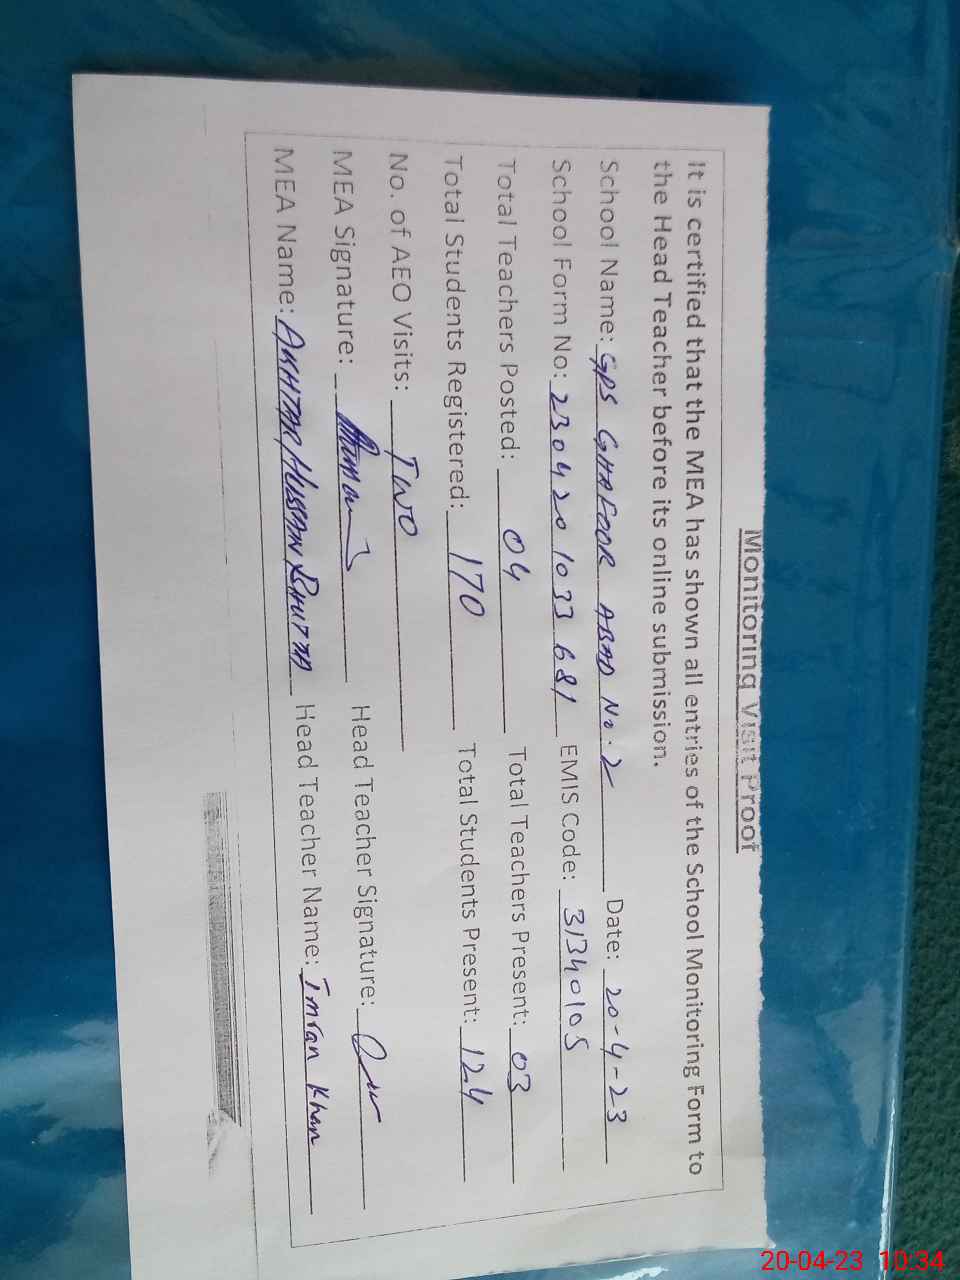 Monitoring Visit Proof
It is certified that the MEA has shown all entries of the School Monitoring Form to
the Head Teacher before its online submission.
School Name: GPS GHAFOOR ABAD No. 2 Date: 20-4-23
School Form No: 230420 1033 681 EMIS Code: 31340105
Total Teachers Posted: 04 Total Teachers Present: 03
Total Students Registered: 170 Total Students Present: 124
No. of AEO Visits: TWO
MEA Signature: Head Teacher Signature:
MEA Name: AKHTAR HUSSAIN BHUTTA Head Teacher Name: Imran Khan
20-04-23 10:34